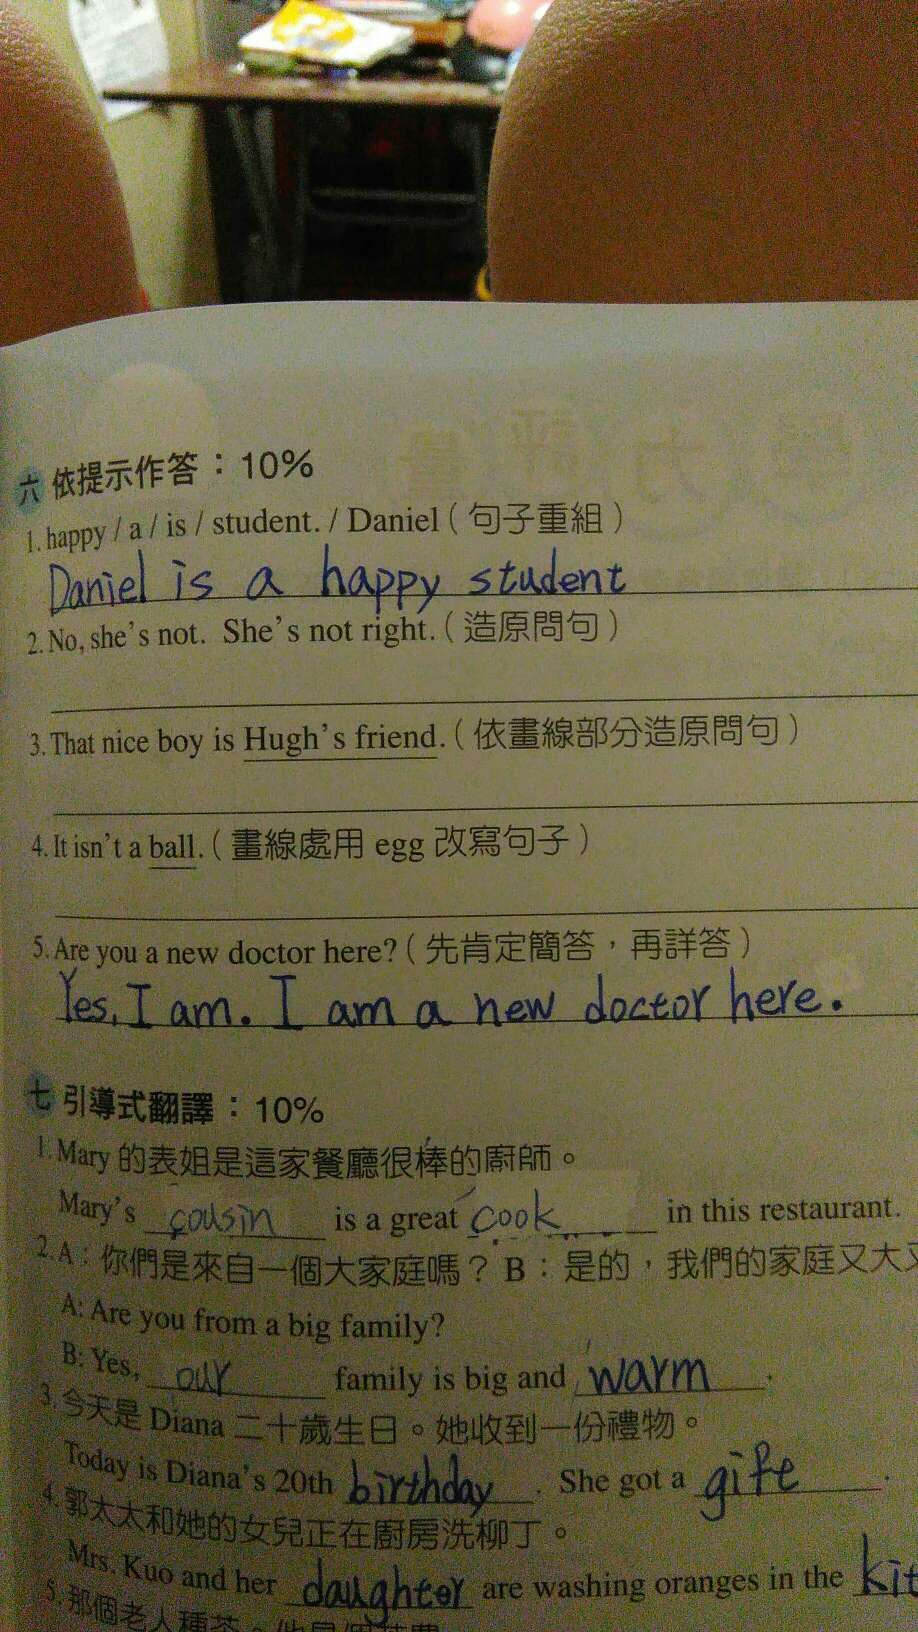 六 依提示作答：10%
1. happy / a / is / student. / Daniel（句子重組）
Daniel is a happy student
2. No, she's not. She's not right.（造原問句）
3. That nice boy is Hugh's friend.（依畫線部分造原問句）
4. It isn't a ball.（畫線處用 egg 改寫句子）
5. Are you a new doctor here?（先肯定簡答，再詳答）
Yes, I am. I am a new doctor here.
七 引導式翻譯：10%
1. Mary 的表姐是這家餐廳很棒的廚師。
Mary's cousin is a great cook in this restaurant.
2. A：你們是來自一個大家庭嗎？ B：是的，我們的家庭又大又
A: Are you from a big family?
B: Yes, our family is big and warm.
3. 今天是 Diana 二十歲生日。她收到一份禮物。
Today is Diana's 20th birthday. She got a gift.
4. 郭太太和她的女兒正在廚房洗柳丁。
Mrs. Kuo and her daughter are washing oranges in the kit
5. 那個老人種茶。他是個茶農